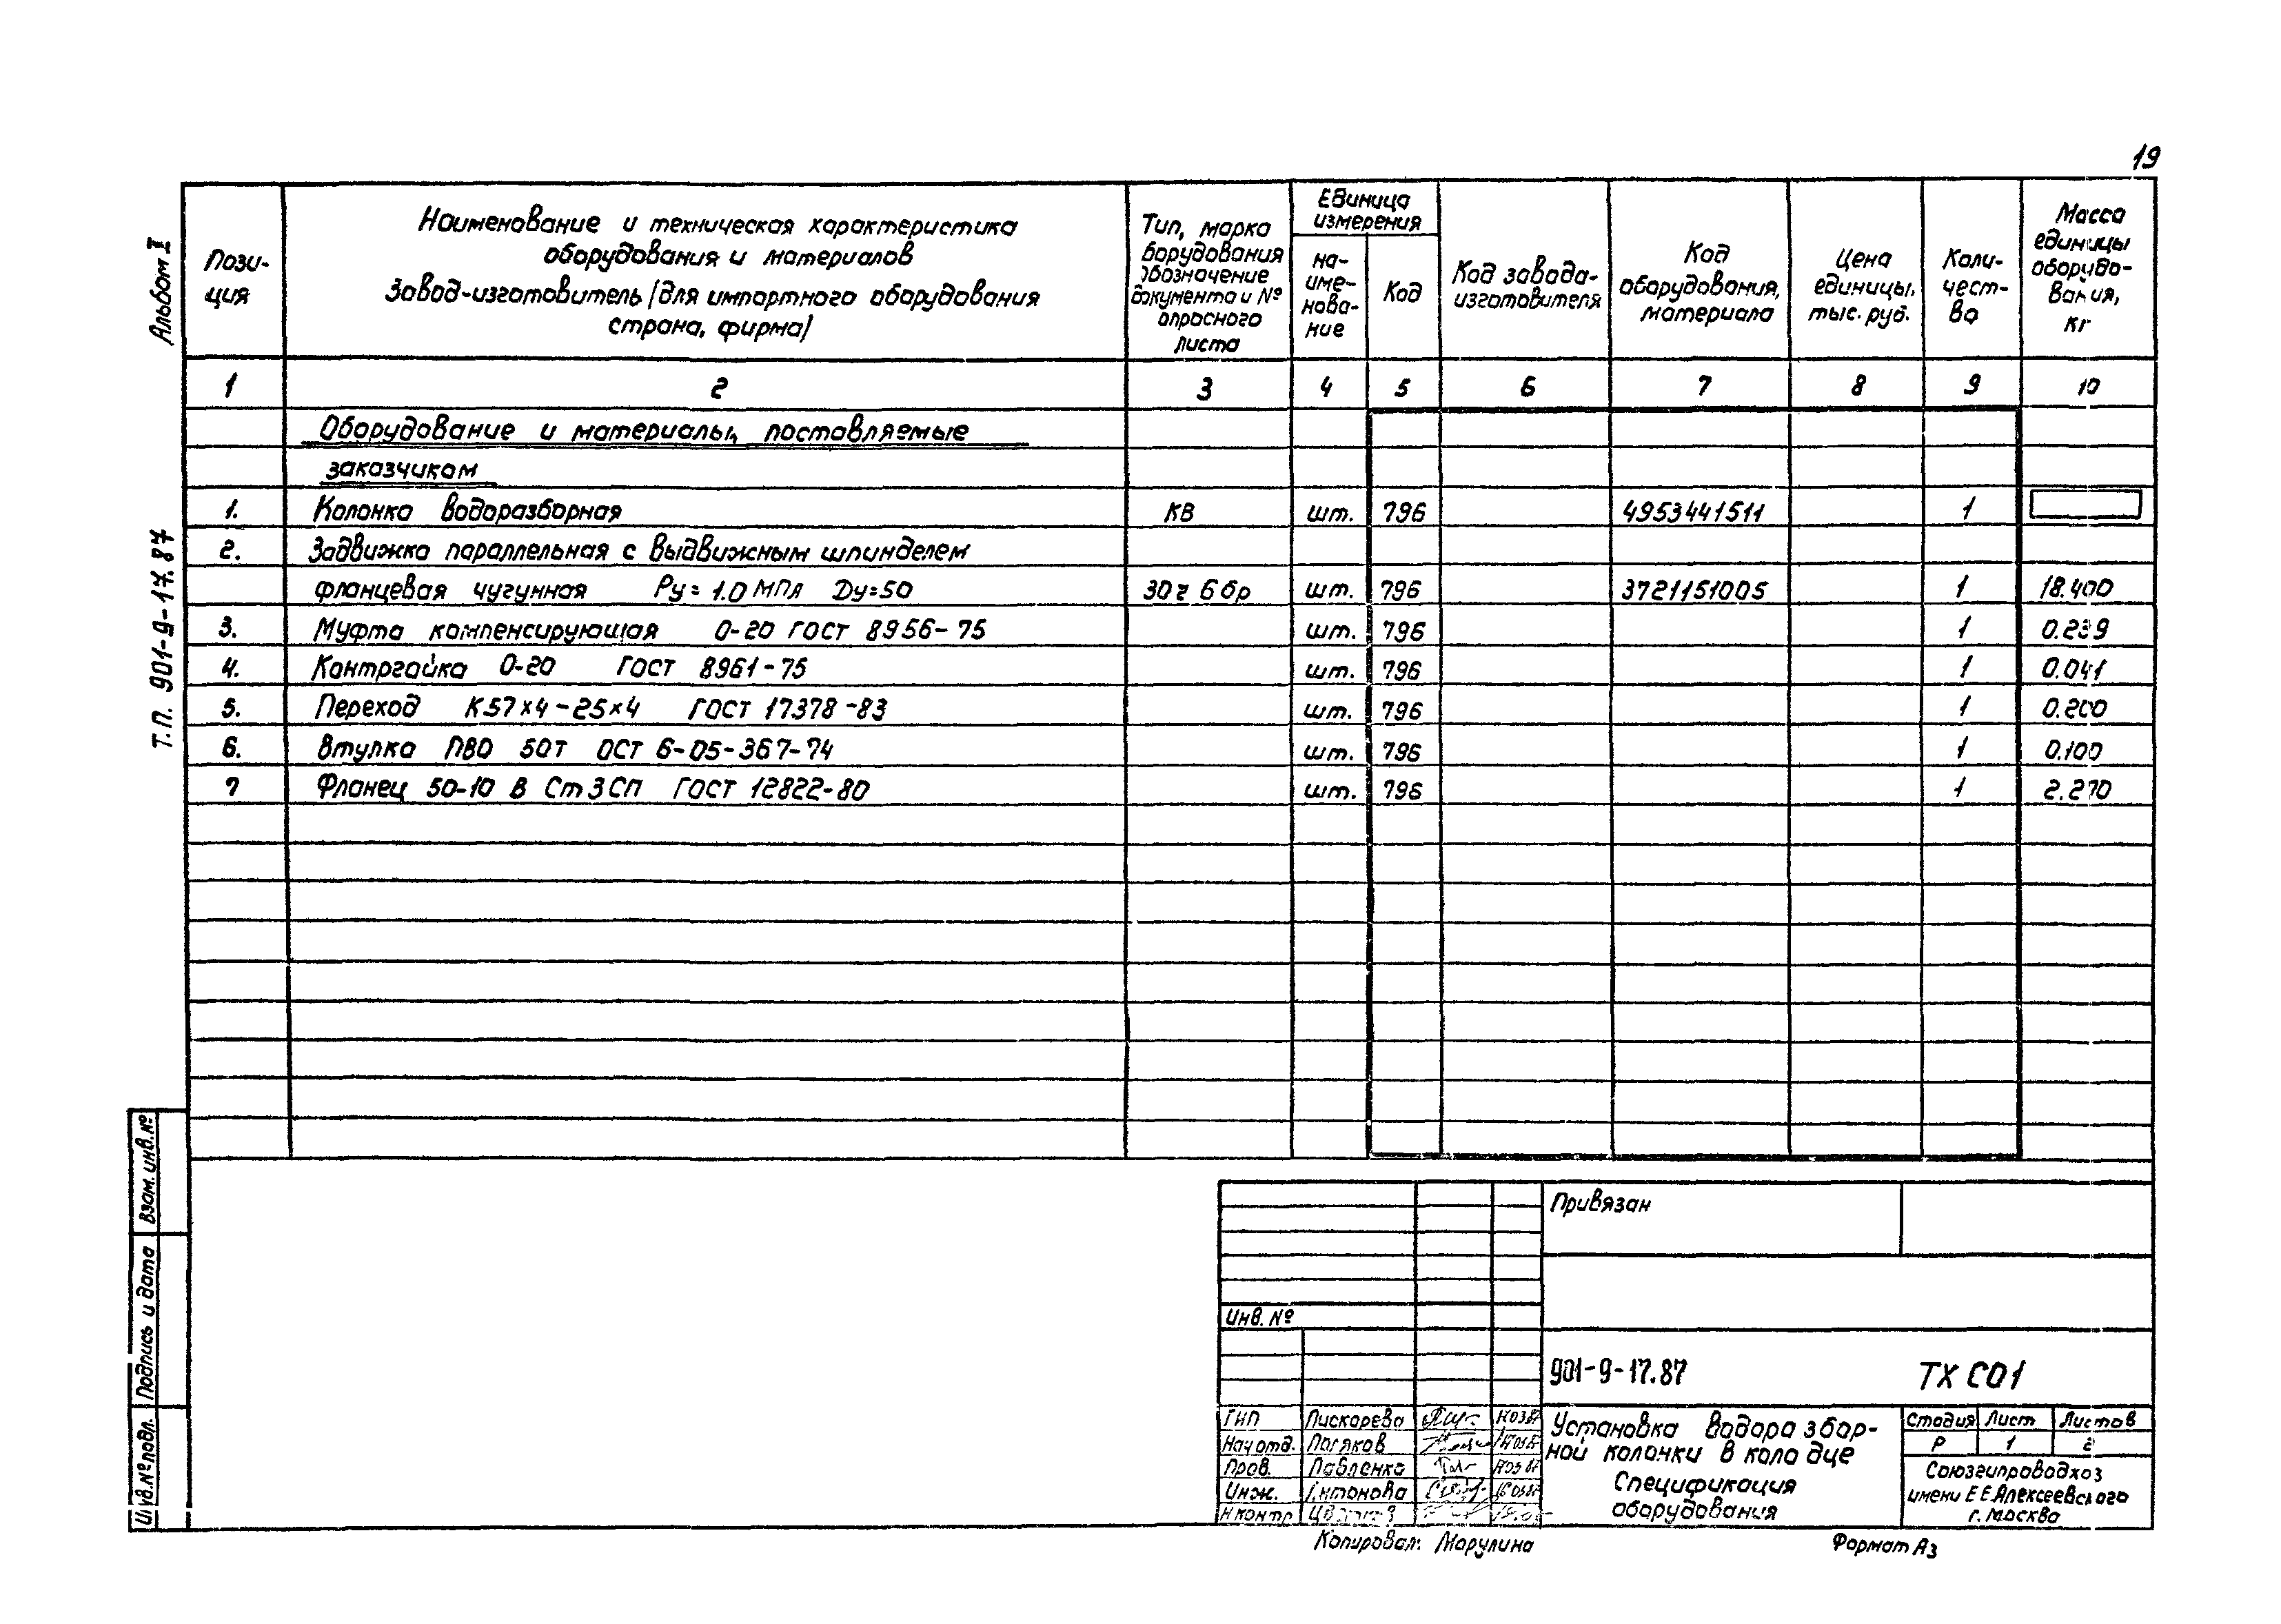 19
Альбом II
Т.П. 901-9-17.87
Пози-
ция
Наименование и техническая характеристика
оборудования и материалов
Завод-изготовитель /для импортного оборудования
страна, фирма/
Тип, марка
борудования
обозначение
документа и №
опросного
листа
Единица
измерения
на-
име-
нова-
ние
Код
Код завода-
изготовителя
Код
оборудования,
материала
Цена
единицы,
тыс. руб.
Коли-
чест-
во
Масса
единицы
оборудо-
вания,
кг
1 2 3 4 5 6 7 8 9 10
Оборудование и материалы, поставляемые
заказчиком
1. Колонка водоразборная КВ шт. 796 4953441511 1
2. Задвижка параллельная с выдвижным шпинделем
фланцевая чугунная Ру= 1.0 МПа Dу=50 30ч 6бр шт. 796 3721151005 1 18.400
3. Муфта компенсирующая О-20 ГОСТ 8956-75 шт. 796 1
4. Контргайка О-20 ГОСТ 8961-75 шт. 796 1 0.041
5. Переход К57х4-25х4 ГОСТ 17378-83 шт. 796 1 0.200
6. Втулка ПВО 50Т ОСТ 6-05-367-74 шт. 796 1 0.100
7 Фланец 50-10 В Ст3СП ГОСТ 12822-80 шт. 796 1 2.270
Взам. инв. №
Подпись и дата
Инв.№ подл.
Привязан
Инв. №
901-9-17.87 ТХ СО1
ГИП Пискарева
Нач отд. Поляков
Пров. Павленко
Инж. Антонова
Н контр
Установка водоразбор-
ной колонки в колодце
Спецификация
оборудования
Стадия Лист Листов
Р 1 2
Союзгипроводхоз
имени Е.Е.Алексеевского
г. Москва
Копировал: Марулина
Формат А3